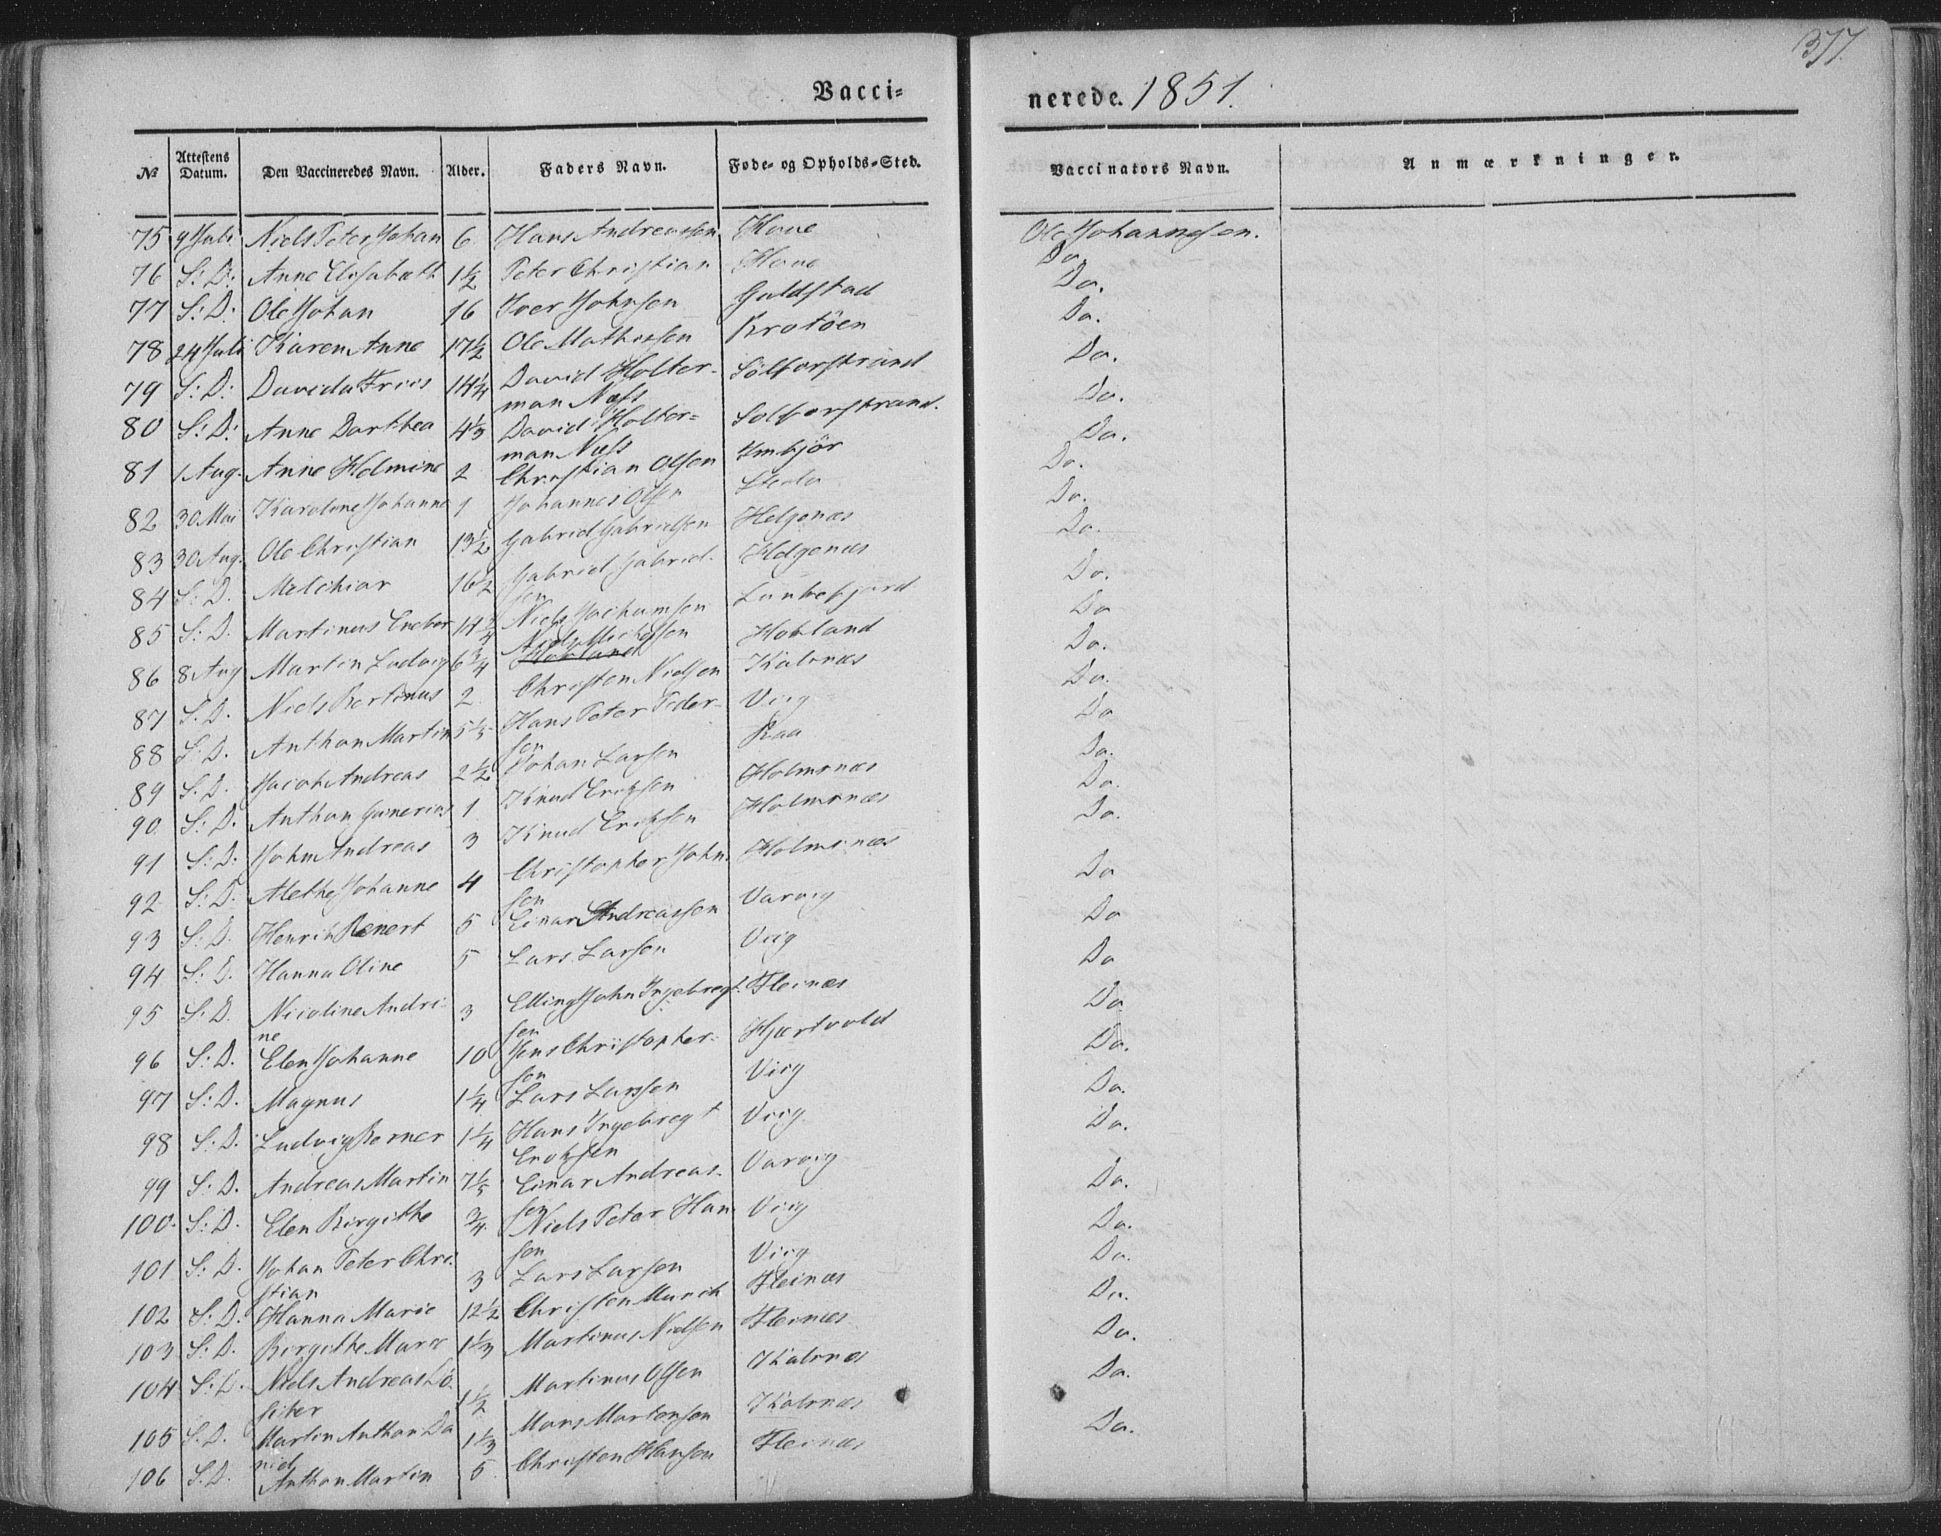 377.
Vacci-
nerede. 1851.
No
Attestens Datum.
Den Vaccineredes Navn.
Alder.
Faders Navn.
Føde- og Opholds-Sted.
Vaccinators Navn.
Anmærkninger.
75 9 Juli Niels Peter Johan 6 Hans Andreassen Hove Ole Johannesen.
76 S: D: Anne Elisabeth 1½ Peter Christian Hove Do.
77 S: D: Ole Johan 16 Iver Johnsen Guldstad Do.
78 24 Juli Karen Anne 17½ Ole Mathisen Krotöen Do.
79 S: D: Davida Friis 14¼ David Holter- Do.
man Næss
80 S: D: Anne Dorthea 4⅓ David Holter- Do.
man Næss
81 1 Aug. Anne Helmine 2 Christian Olsen Do.
82 30 Mai Karoline Johanne 1 Johannes Olsen Do.
83 30 Aug. Ole Christian 13½ Gabriel Gabrielsen Helgenæs Do.
84 S. D. Melchior 16½ Gabriel Gabriel- Helgenæs Do.
sen
85 S: D. Martinus 14 Niels Jochumsen Do.
86 8 Aug Martin Ludvig 6¾ Niels Hovland Do.
87 S. D. Niels Bertinus 2 Christen Nielsen Kalsnæs Do.
88 S: D. Anthon Martin 5 Hans Peter Peder- Viig Do
sen
89 S: D. Jacob Andreas 2½ Johan Larsen Raa Do.
90 S: D. Anthon Gunerius 1 Knud Eriksen Holmsnæs Do.
91 S: D. John Andreas 3 Knud Eriksen Holmsnæs Do.
92 S: D. Alethe Johanne 4 Christopher John- Holmsnæs Do
sen
93 S: D. Henrik Benert 5 Einar Andreassen Varvig Do
94 S: D. Hanna Oline 5 Lars Larsen Viig Do
95 S: D. Nicoline Andri- 3 Elling John Ingebregt- Fleinæs Do
ne sen
96 S: D. Elen Johanne 10 Jens Christopher- Hjertvold Do.
sen
97 S: D. Magnus 1¼ Lars Larsen Viig Do.
98 S: D. Ludvig Berner 1¼ Hans Ingebregt Viig Do.
Eriksen
99 S: D. Andreas Martin 7⅕ Einar Andreas- Varvig Do.
sen
100. S: D. Elen Birgithe ¾ Niels Peter Han- Viig Do.
sen
101 S: D. Johan Peter Chri- 3 Lars Larsen Viig Do.
stian
102 S: D. Hanna Marie 12½ Christen Munch Fleinæs Do.
103 S: D. Birgithe Marie 1⅓ Martinus Nielsen Fleinæs Do.
104 S: D. Niels Andreas 1½ Martinus Olsen Kalsnæs Do.
105 S. D. Martin Anthon Da 1⅓ Mons Mortensen Kalsnæs Do.
niel
106 S. D. Anthon Martin 5 Christen Hansen Fleinæs